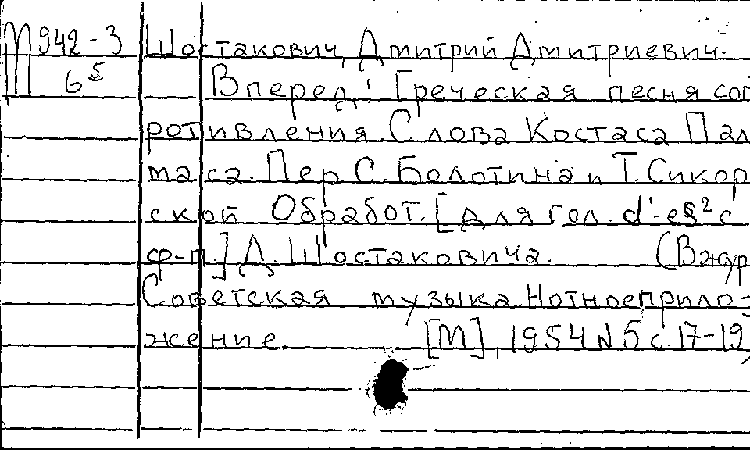 М 942-3 Шостакович, Дмитрий Дмитриевич.
6⁵ Вперед! Греческая песня соп
ротивления. Слова Костаса Пал
маса. Пер. С. Болотина и Т. Сикор
ской Обработ. [для гол. d'-es² с
ф-п.] Д. Шостаковича. (В жур
Советская музыка. Нотное прило-
жение. [М], 1954 N 5 с 17-19)